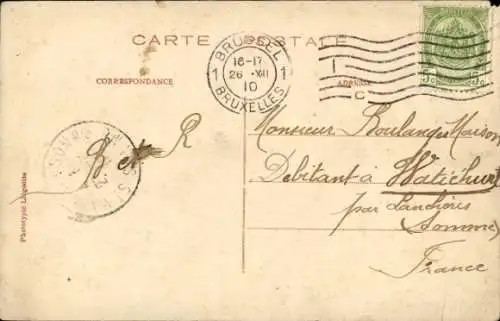 CARTE POSTALE
BRUSSEL
1 16-17 1
26 XII
10
BRUXELLES
1
C
CORRESPONDANCE
ADRESSE
5c 5c
Monsieur Boulanger Maison
Debitant à Watiehurt
par Landières
Somme
France
R et R
Phototypie Liégeoise